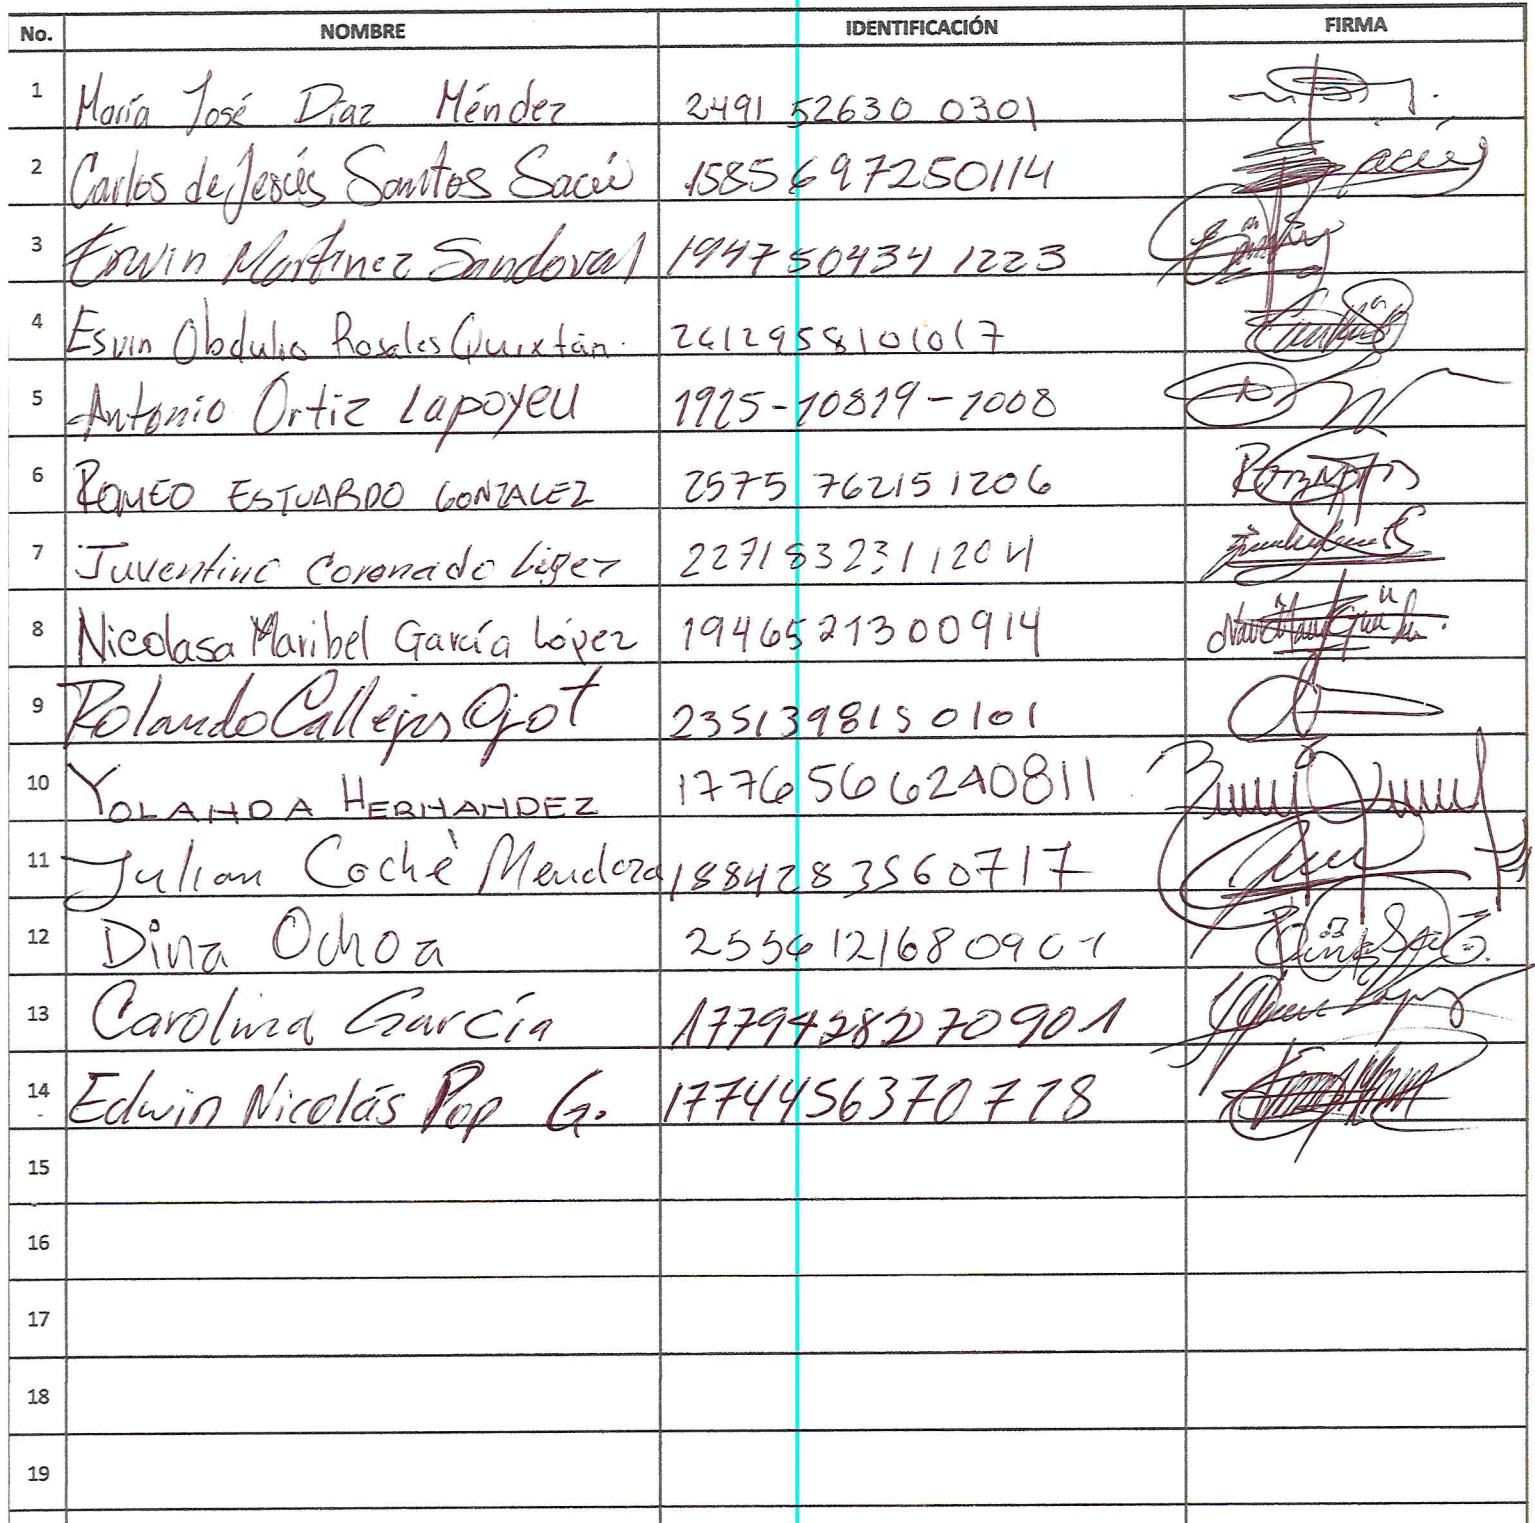 No. NOMBRE IDENTIFICACIÓN FIRMA
1 María José Díaz Méndez 2491 52630 0301
2 Carlos de Jesús Santos Sacú 1585697250114
3 Erwin Martínez Sandoval 1947 50434 1223
4 Esvin Obdulio Rosales Quixtán. 2612958101017
5 Antonio Ortiz Lapoyeu 1925-10819-1008
6 ROMEO ESTUARDO GONZALEZ 2575 76215 1206
7 Juventino Coronado 2271832311204
8 Nicolasa Maribel García López 1946521300914
9 Rolando Callejas Ojot 2351398150101
10 YOLANDA HERNANDEZ 1776566240811
11 Julian Cochè Mendoza 1884283560717
12 Dina Ochoa 2556121680901
13 Carolina García 1779428270901
14 Edwin Nicolás Pop G. 1774456370718
15
16
17
18
19